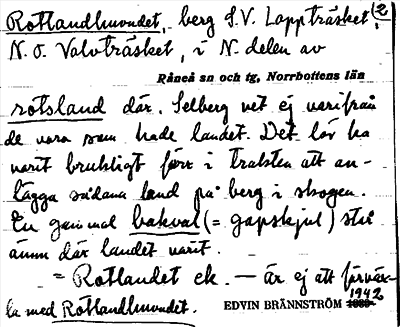 Rotlandhuvudet, berg S.V. Lappträsket, (2)
N.O. Valvträsket, i N. delen av
Råneå sn och tg, Norrbottens län
rotsland där. Selberg vet ej varifrån
de vara som hade landet. Det lär ha
varit brukligt förr i trakten att an-
lägga sådana land på berg i skogen.
En gammal bakval (= gapskjul) står
ännu där landet varit.
= Rotlandet ek. — är ej att förväx-
la med Rotlandhuvudet.
EDVIN BRÄNNSTRÖM 1942